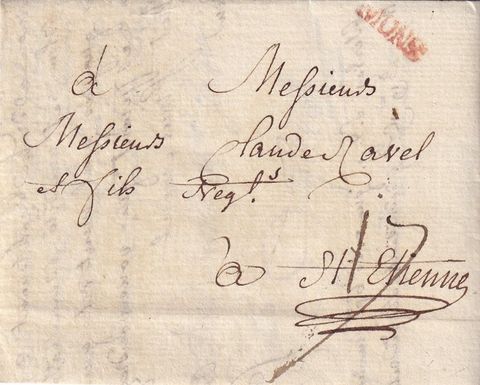 MONS
à Messieurs
Messieurs Claude Ravel
et fils Neg.ts
17
à St Etienne